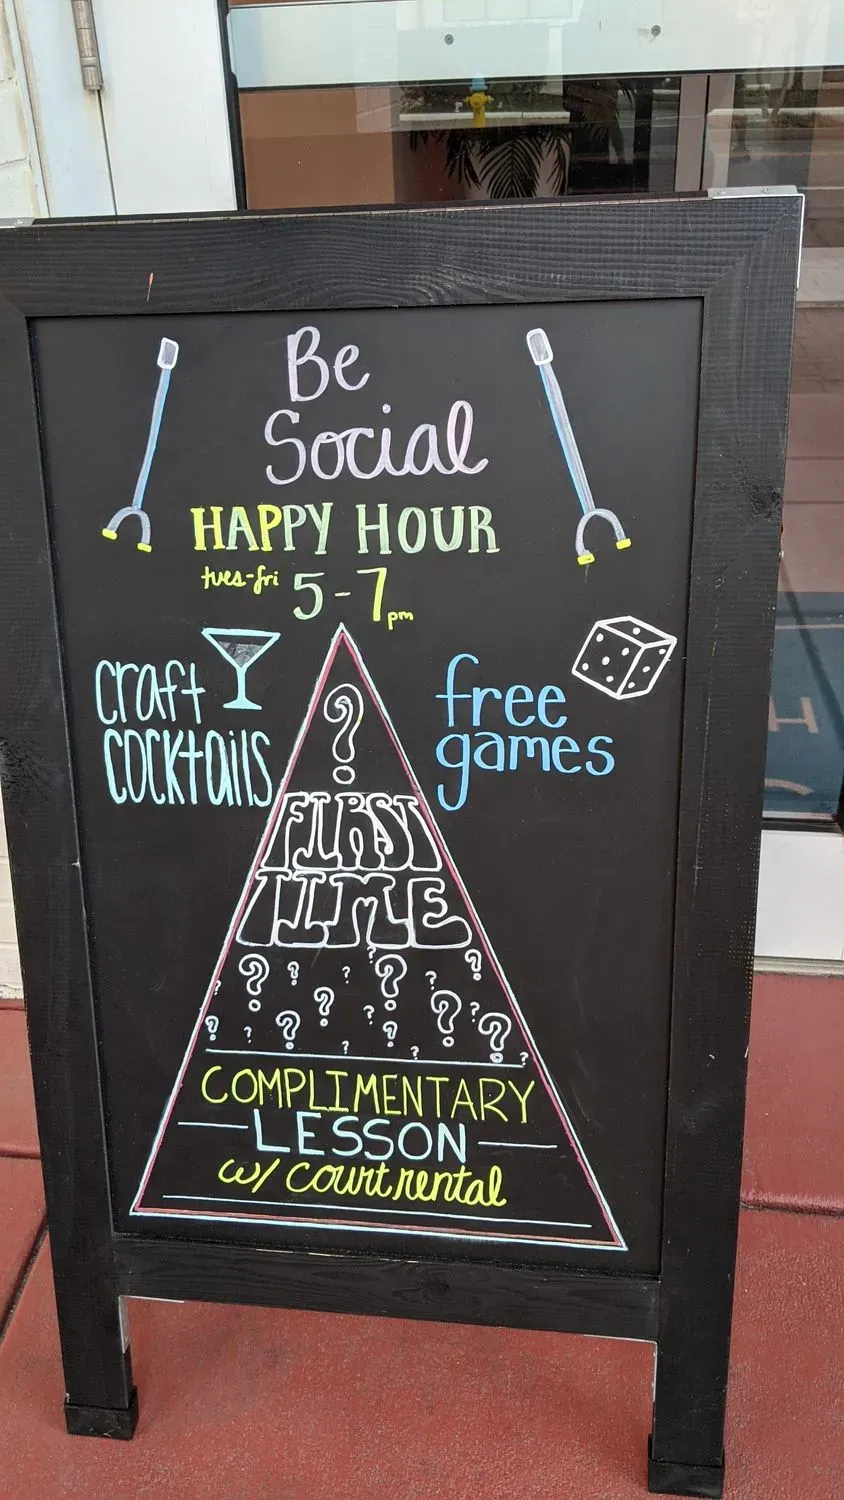 Be
Social
HAPPY HOUR
tues-fri 5-7pm
craft
cocktails
free
games
?
FIRST
TIME
? ? ? ? ? ? ?
? ? ? ? ? ? ?
? ? ? ? ? ? ? ?
COMPLIMENTARY
LESSON
w/ court rental